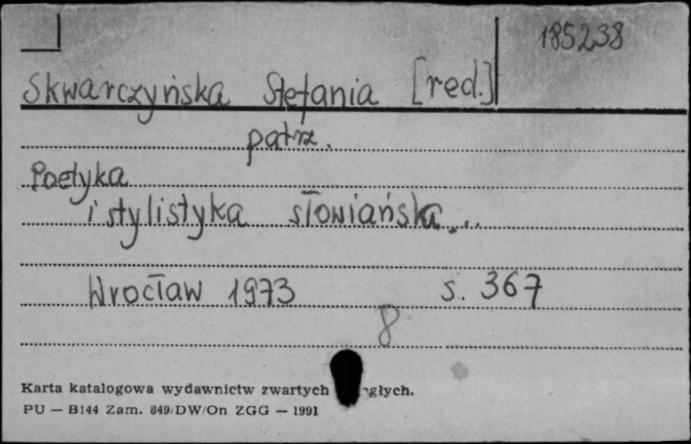 185238
Skwarczyńska Stefania [red.]
patrz.
Poetyka
i stylistyka słowiańska...
Wrocław 1973 s. 367
8
Karta katalogowa wydawnictw zwartych
PU — B144 Zam. 849/DW/On ZGG — 1991